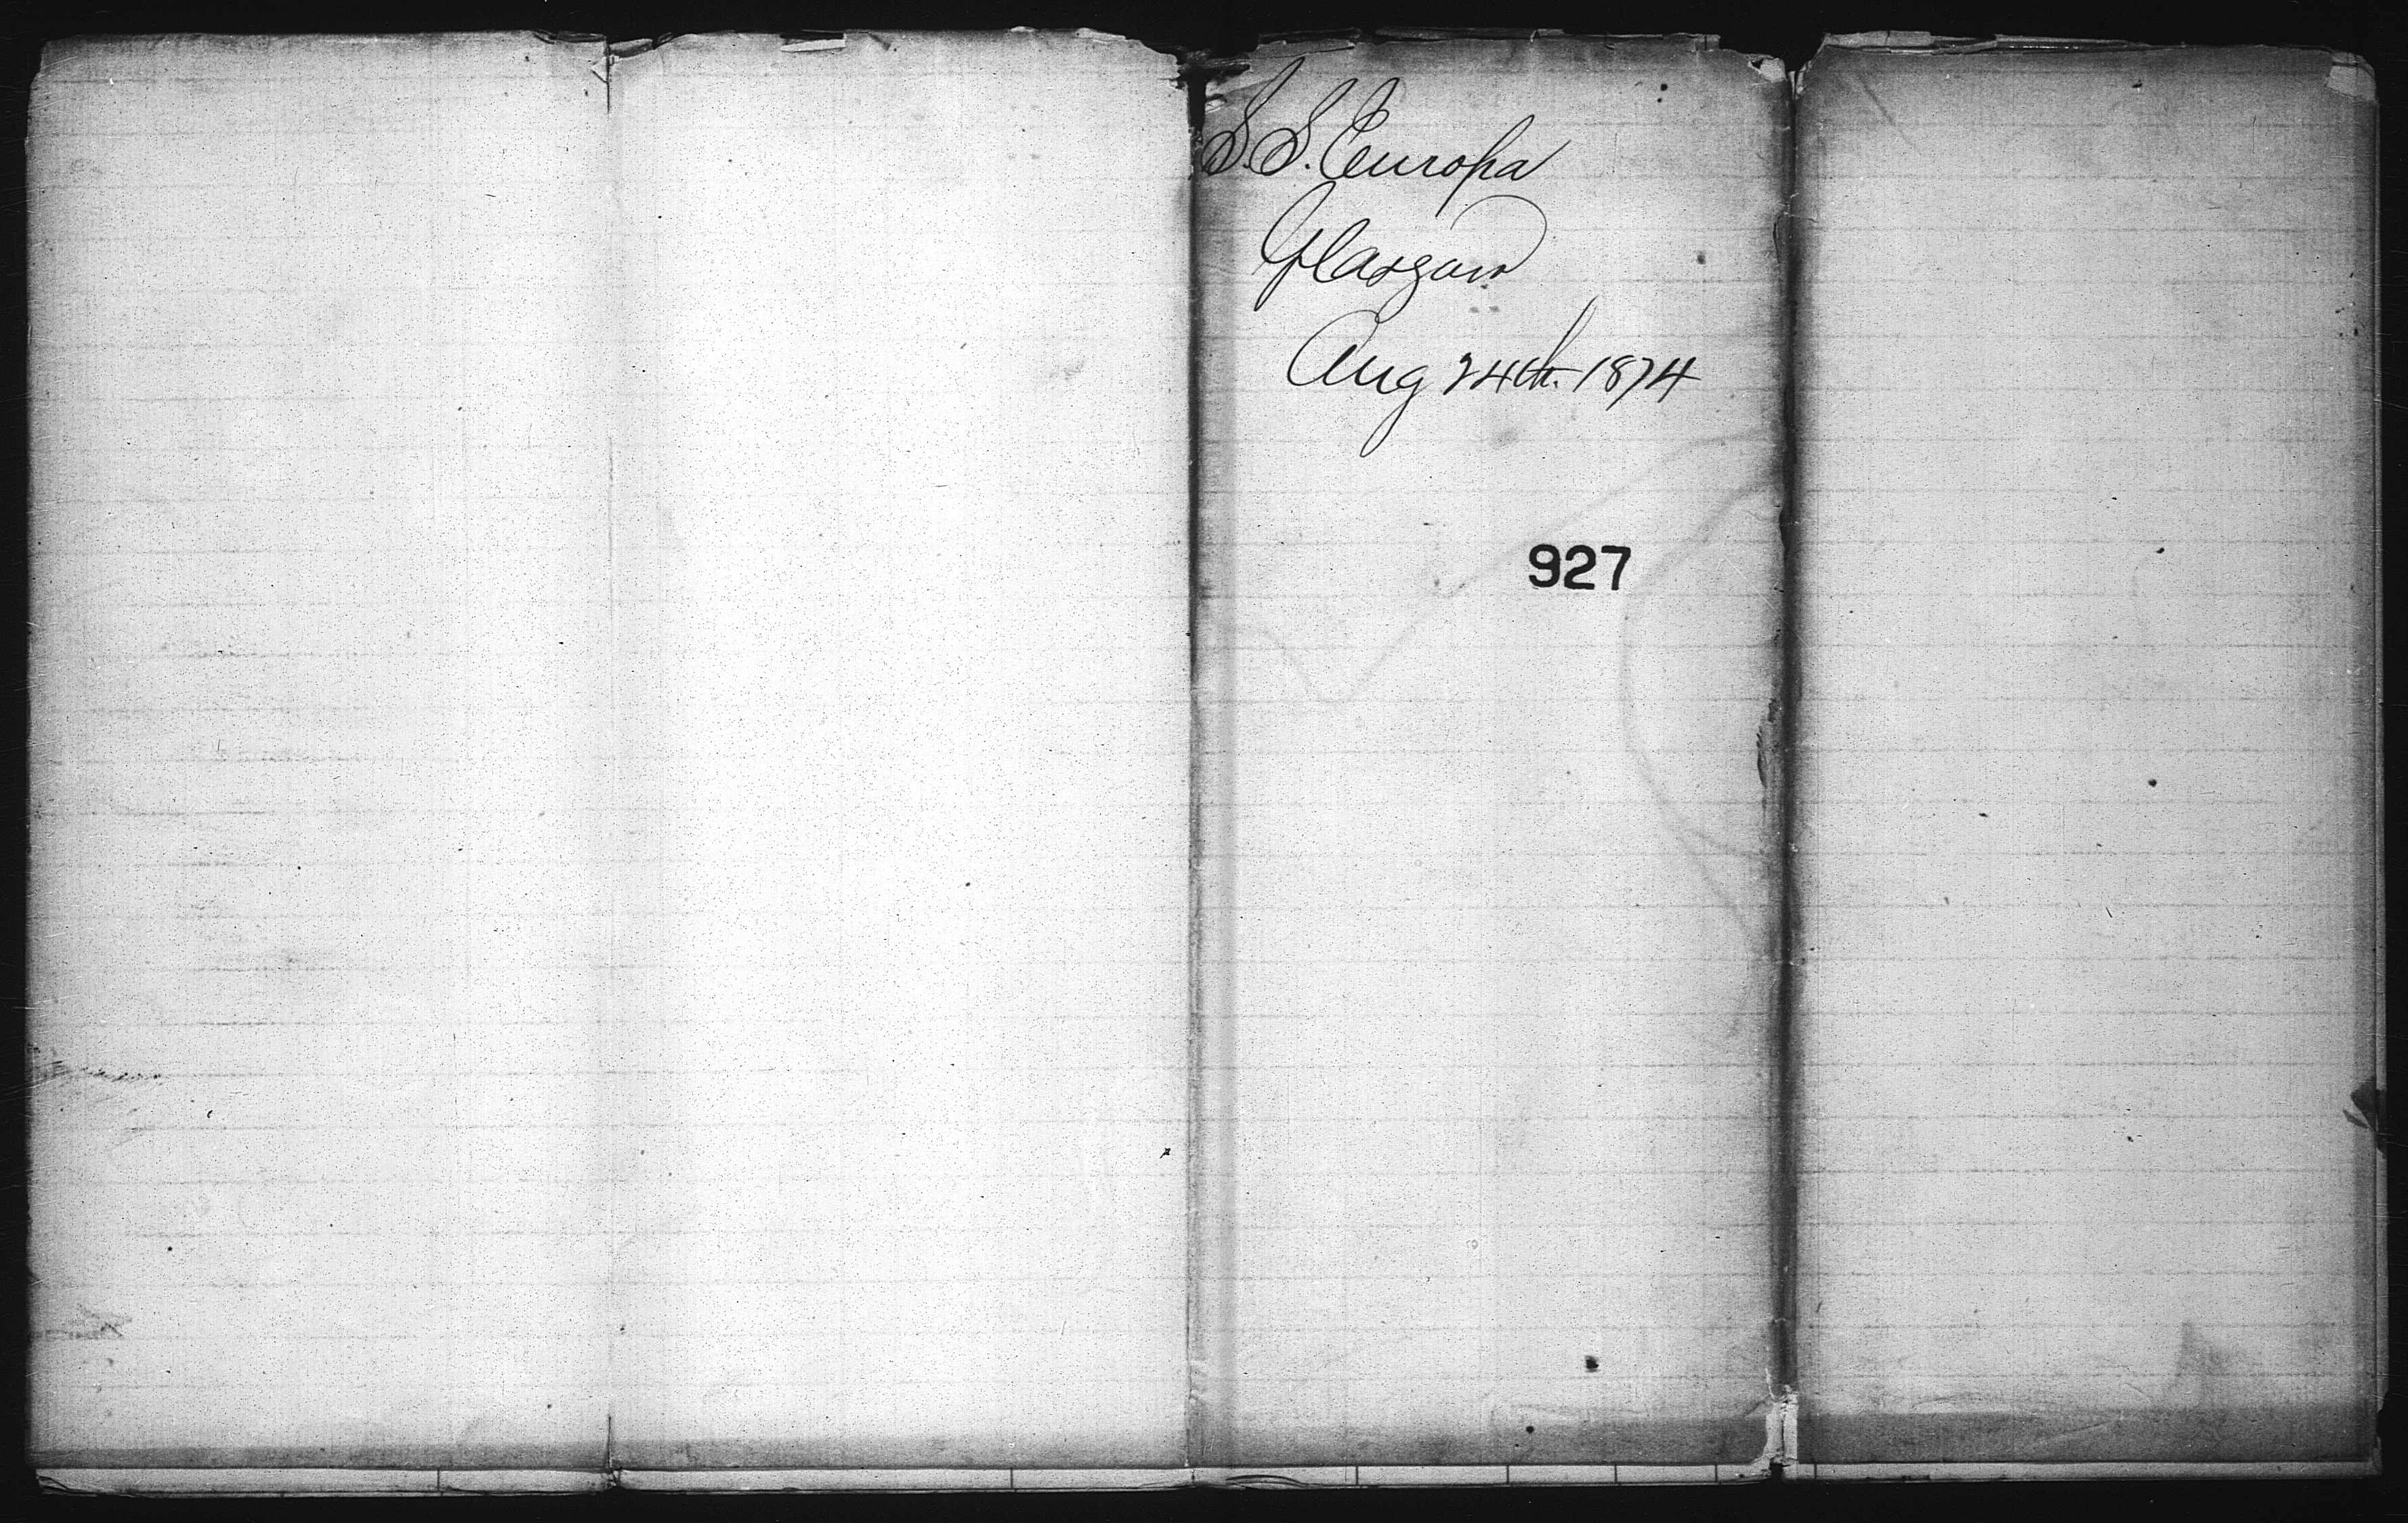 S.S. Europa
Glasgow
Aug 24th. 1874
927